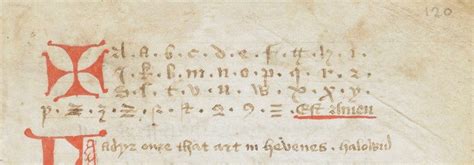 120
✠ A · a · b · c · d · e · f · g · h · i ·
k · l · m · n · o · p · q · r · ꝛ ·
ſ · t · v · u · w · x · y
Est Amen
Fadyr oure that art in hevenes · halowid